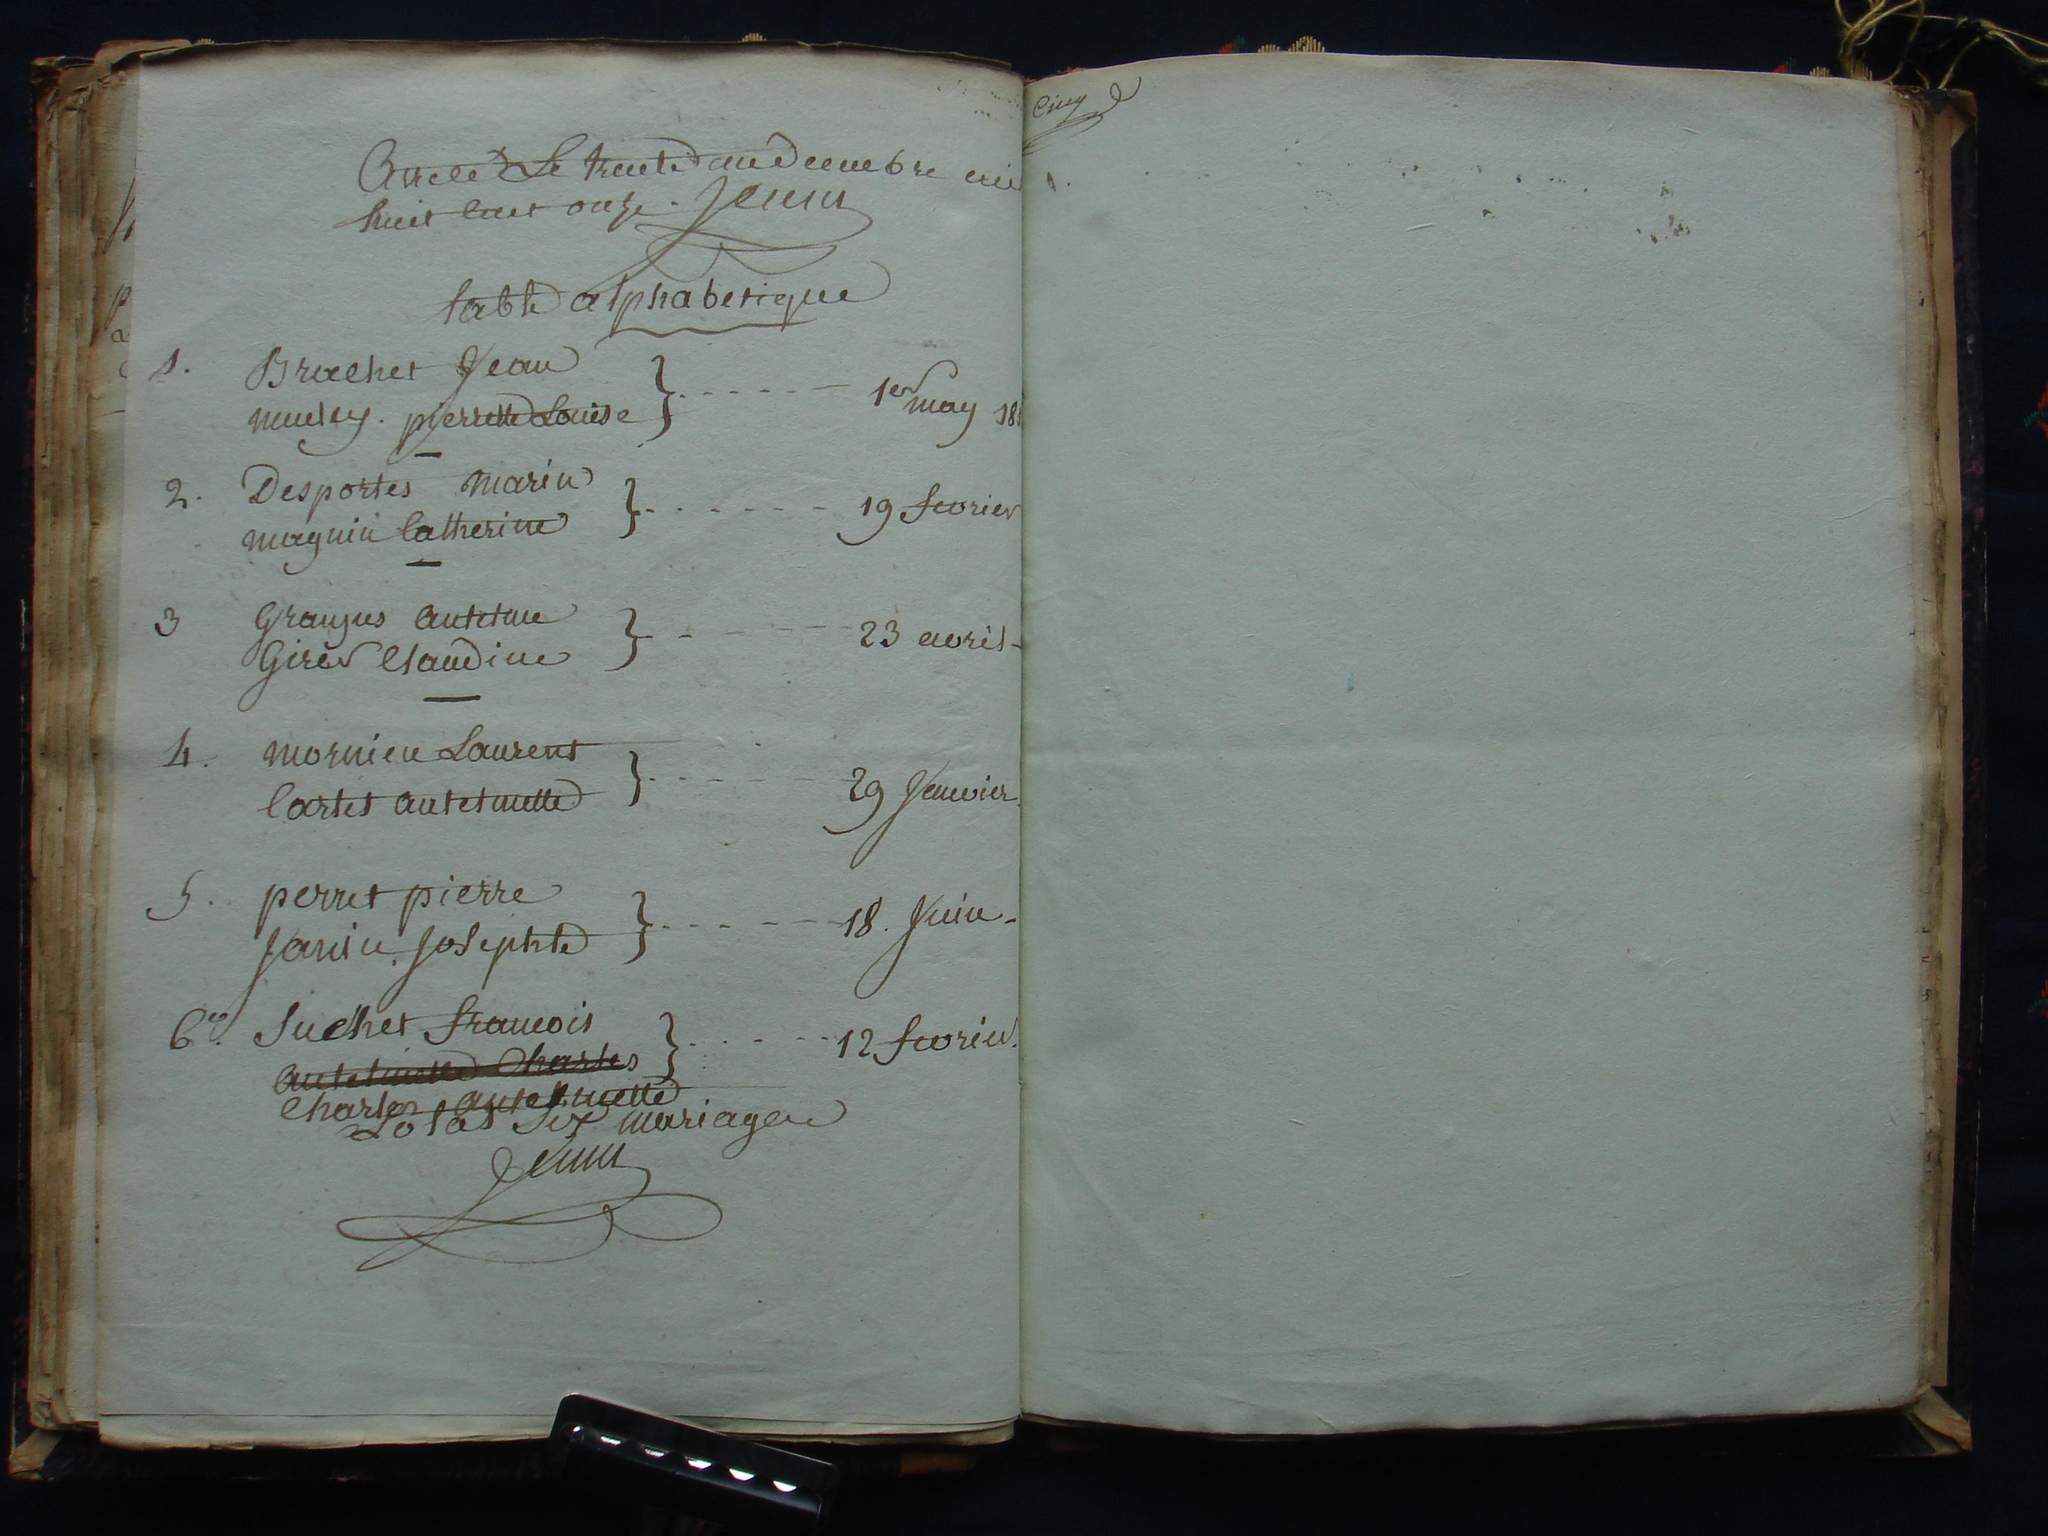 Arreté Le trente un décembre mil
huit cent onze.
table alphabetique
1. Brachet Jean
pierrette Louise } 1er may 181
2. Desportes Marin
magnin Catherine } 19 fevrier
3 antelme
Girer Claudine } 23 avril
4. mornieu Laurent
Cartet antelmette } 29 Janvier
5. perret pierre
Janin Josephte } 18. Juin
6e. Suchet francois
antelmette Charles } 12 fevrier.
Charles antelmette
total Six mariages
Cinq